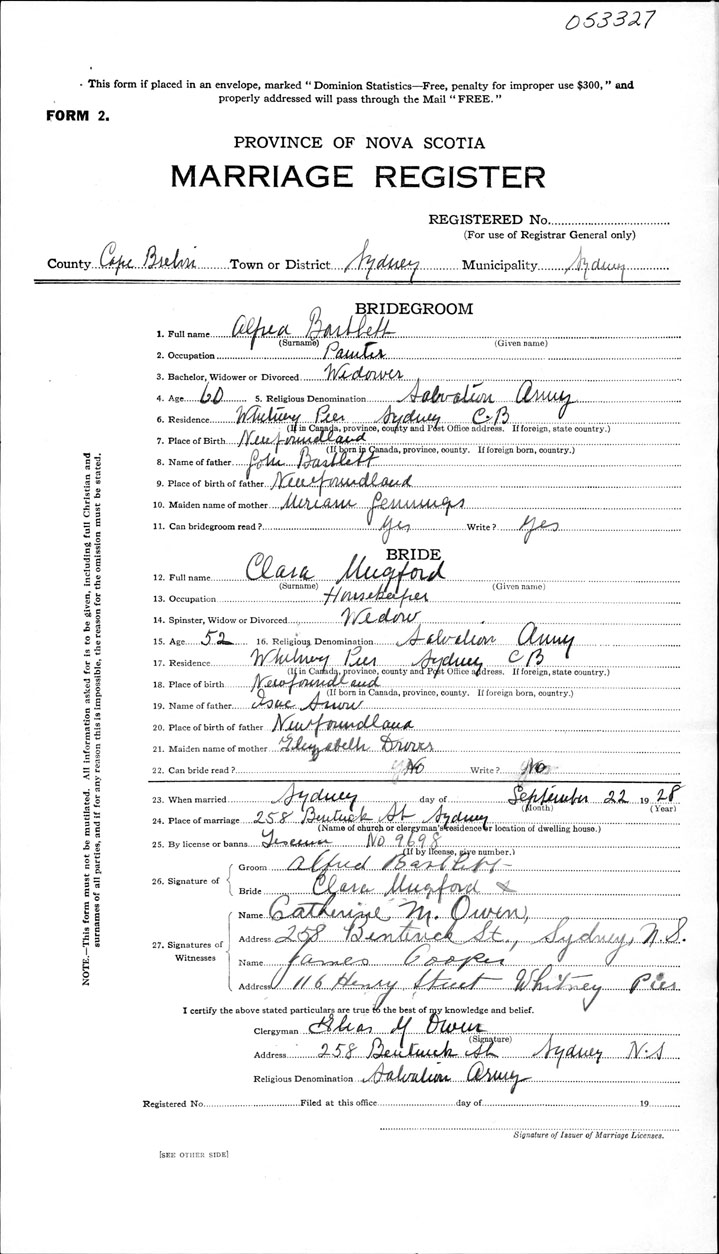 053327
· This form if placed in an envelope, marked "Dominion Statistics—Free, penalty for improper use $300," and
properly addressed will pass through the Mail "FREE."
FORM 2.
PROVINCE OF NOVA SCOTIA
MARRIAGE REGISTER
REGISTERED No.
(For use of Registrar General only)
County Cape Breton Town or District Sydney Municipality Sydney
BRIDEGROOM
1. Full name Alfred Bartlett
(Surname) (Given name)
2. Occupation Painter
3. Bachelor, Widower or Divorced Widower
4. Age 60 5. Religious Denomination Salvation Army
6. Residence Whitney Pier Sydney C.B
(If in Canada, province, county and Post Office address. If foreign, state country.)
7. Place of Birth Newfoundland
(If born in Canada, province, county. If foreign born, country.)
8. Name of father John Bartlett
9. Place of birth of father Newfoundland
10. Maiden name of mother Miriam Jennings
11. Can bridegroom read? Yes Write? Yes
BRIDE
12. Full name Clara Mugford
(Surname) (Given name)
13. Occupation Housekeeper
14. Spinster, Widow or Divorced Widow
15. Age 52 16. Religious Denomination Salvation Army
17. Residence Whitney Pier Sydney C B
(If in Canada, province, county and Post Office address. If foreign, state country.)
18. Place of birth Newfoundland
(If born in Canada, province, county. If foreign born, country.)
19. Name of father Isac Snow
20. Place of birth of father Newfoundland
21. Maiden name of mother Elizabeth Drover
22. Can bride read? No Write? No
23. When married Sydney day of September 22 1928
(Month) (Year)
24. Place of marriage 258 Bentinck St Sydney
(Name of church or clergyman's residence or location of dwelling house.)
25. By license or banns License No 9698
(If by license, give number.)
26. Signature of Groom Alfred Bartlett
Bride Clara Mugford x
27. Signatures of Witnesses Name Catherine M. Owen,
Address 258 Bentinck St., Sydney, N.S.
Name James Cooper
Address 116 Henry Street Whitney Pier
I certify the above stated particulars are true to the best of my knowledge and belief.
Clergyman Elias Owen
(Signature)
Address 258 Bentinck St Sydney N.S
Religious Denomination Salvation Army
Registered No. Filed at this office day of 19
Signature of Issuer of Marriage Licenses.
[SEE OTHER SIDE]
NOTE.—This form must not be mutilated. All information asked for is to be given, including full Christian and
surnames of all parties, and if for any reason this is impossible, the reason for the omission must be stated.